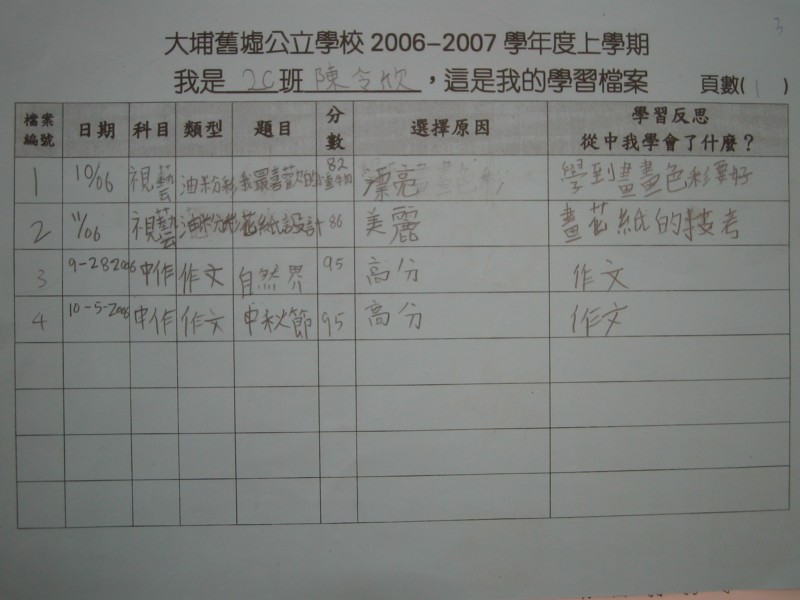 3
大埔舊墟公立學校 2006-2007 學年度上學期
我是 2C 班 陳令欣，這是我的學習檔案 頁數( 1 )
檔案編號 日期 科目 類型 題目 分數 選擇原因 學習反思 從中我學會了什麼？
1 10/06 視藝 油粉彩 我最喜歡的食物 82 漂亮 學到畫畫色彩要好
2 11/06 視藝 油粉彩 花紙設計 86 美麗 畫花紙的技考
3 9-28-2006 中作 作文 自然界 95 高分 作文
4 10-5-2006 中作 作文 中秋節 95 高分 作文